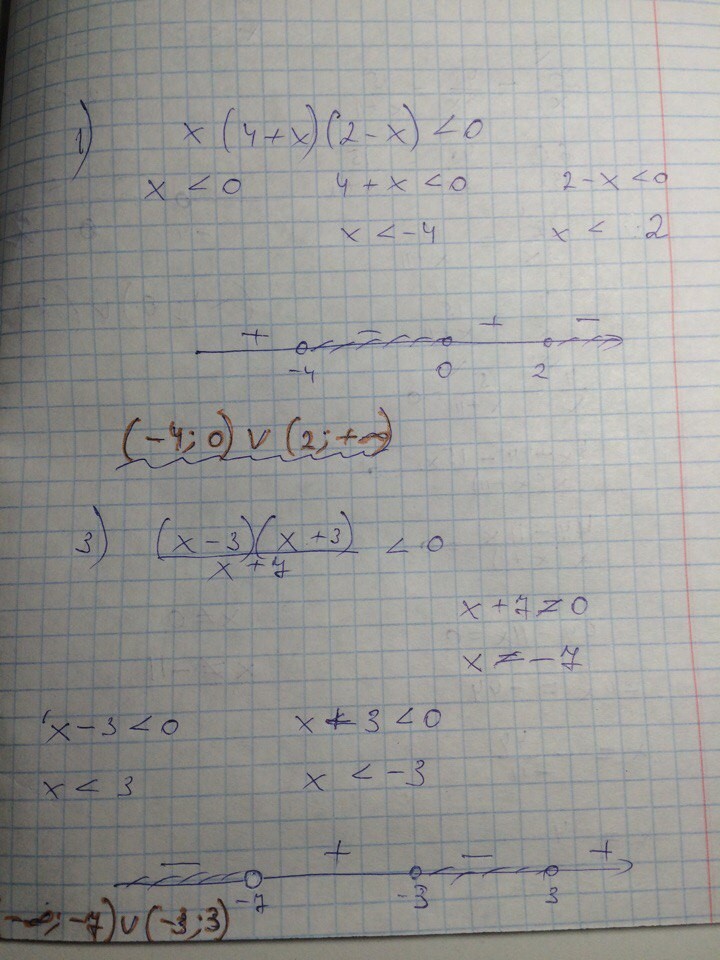 1) x (4+x)(2-x) < 0
x < 0 4+x < 0 2-x < 0
x < -4 x < 2
+ - + -
-4 0 2
(-4; 0) ∨ (2; +∞)
3) (x-3)(x+3)/x+7 < 0
x+7 ≠ 0
x ≠ -7
x-3 < 0 x+3 < 0
x < 3 x < -3
- + - +
-7 -3 3
(-∞; -7) ∪ (-3; 3)